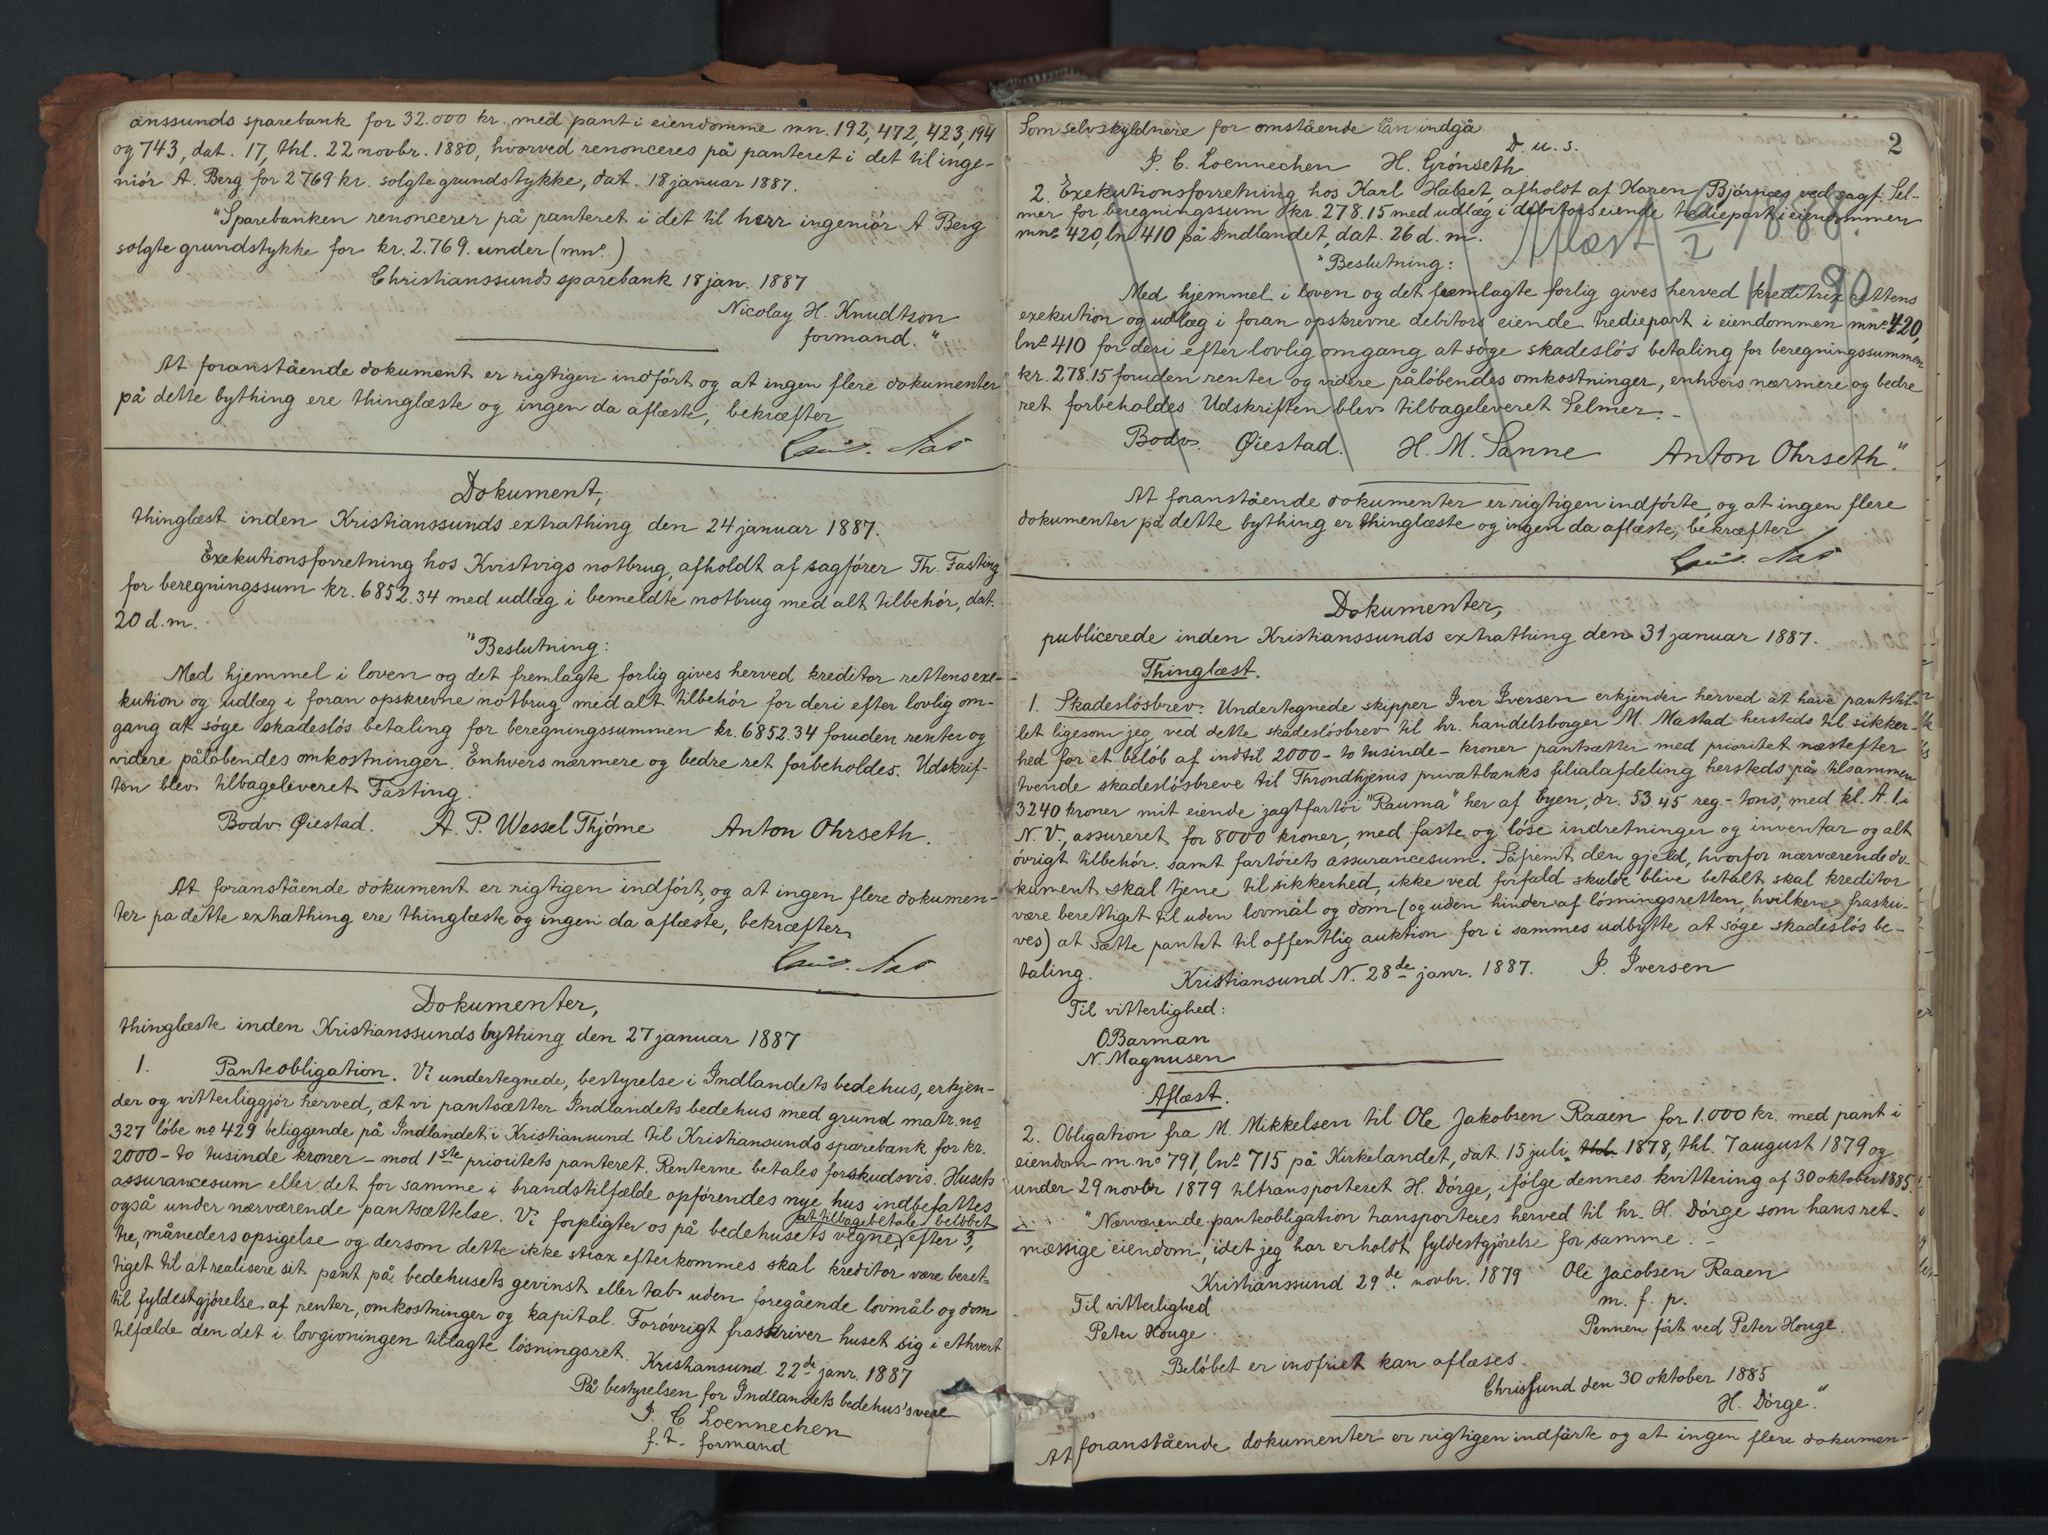 anssunds sparebank for 32.000 kr. med pant i eiendomme mn. 192, 472, 423, 194
og 743, dat. 17, thl. 22 novbr. 1880, hvorved renonceres på panteret i det til inge-
niör A. Berg for 2769 kr. solgte grundstykke, dat. 18 januar 1887.
"Sparebanken renoncerer på panteret i det til herr ingeniör A Berg
solgte grundstykke for kr. 2.769. under (mno.)
Christianssunds sparebank 18 jan. 1887
Nicolay H. Knudtson
formand."
At foranstående dokument er rigtigen indfört og at ingen flere dokumenter
på dette bything ere thinglæste og ingen da aflæste, bekræfter
Dokument,
thinglæst inden Kristianssunds extrathing den 24 januar 1887.
Exekutionsforretning hos Kvistvigs notbrug, afholdt af sagförer Th. Fasting
for beregningssum kr. 6852.34 med udlæg i bemeldte notbrug med alt tilbehör, dat.
20 d. m.
"Beslutning:
Med hjemmel i loven og det fremlagte forlig gives herved kreditor rettens exe-
kution og udlæg i foran opskrevne notbrug med alt tilbehör for deri efter lovlig om-
gang at söge skadeslös betaling for beregningssummen kr. 6852.34 foruden renter og
videre pålöbendes omkostninger. Enhvers nærmere og bedre ret forbeholdes. Udskrif-
ten blev tilbageleveret Fasting.
Bodv. Øiestad. A. P. Wessel Thjöme Anton Ohrseth.
At foranstående dokument er rigtigen indfört, og at ingen flere dokumen-
ter pa dette extrathing ere thinglæste og ingen da aflæste, bekræfter
Dokumenter,
thinglæste inden Kristianssunds bything den 27 januar 1887
1. Panteobligation. Vi undertegnede, bestyrelse i Indlandets bedehus, erkjen-
der og vitterliggjör herved, at vi pantsætter Indlandets bedehus med grund matr. no
327 löbe no 429 beliggende på Indlandet i Kristiansund til Kristiansunds sparebank for kr.
2000 - to tusinde kroner - mod 1ste prioritets panteret. Renterne betales forskudsvis. Husets
assurancesum eller det for samme i brandstilfælde opförendes nye hus indbefattes
også under nærværende pantsættelse. Vi forpligter os på bedehusets vegne, efter 3,
at tilbagebetale belöbet
tre, måneders opsigelse og dersom dette ikke strax efterkommes skal kreditor være beret-
tiget til at realisere sit pant på bedehusets gevinst eller tab uden foregående lovmål og dom
til fyldestgjörelse af renter, omkostninger og kapital. Forövrigt fraskriver huset sig i ethvert
tilfælde den det i lovgivningen tillagte lösningsret.
Kristiansund 22de janr. 1887
På bestyrelsen for Indlandets bedehus's vegne
P. C Loennechen
f. t. formand
2
Som selvskyldnere for omstående lån indgå
D. u. s.
P. C. Loennechen H. Grönseth
2. Exekutionsforretning hos Karl Halset, afholdt af Karen Bjørnæs ved sagf. Sel-
mer for beregningssum kr. 278.15 med udlæg i debitors eiende trediepart i eiendommen
mno 420, lno 410 på Indlandet, dat. 26 d. m.
Aflæst 6/2 1888.
"Beslutning:
11-90
Med hjemmel i loven og det fremlagte forlig gives herved kreditrix rettens
exekution og udlæg i foran opskrevne debitors eiende trediepart i eiendommen mno 420,
lno 410 for deri efter lovlig omgang at söge skadeslös betaling for beregningssummen
kr. 278.15 foruden renter og videre pålöbendes omkostninger, enhvers nærmere og bedre
ret forbeholdes. Udskriften blev tilbageleveret Selmer.-
Bodv. Øiestad. H. M. Sanne Anton Ohrseth."
At foranstående dokumenter er rigtigen indförte, og at ingen flere
dokumenter på dette bything er thinglæste og ingen da aflæste, bekræfter
Dokumenter,
publicerede inden Kristianssunds extrathing den 31 januar 1887.
Thinglæst.
1. Skadeslösbrev. Undertegnede skipper Iver Iversen erkjender herved at have pantstil-
let ligesom jeg ved dette skadeslösbrev til hr. handelsborger M. Mastad hersteds til sikker-
hed for et belöb af indtil 2000 - to tusinde - kroner pantsætter med prioritet næstefter
tvende skadeslösbreve til Throndhjems privatbanks filialafdeling hersteds på tilsammen
3240 kroner mit eiende jagtfartöi "Rauma" her af byen, dr. 53.45 reg.- tons, med kl. A. 1 i
N. V., assureret for 8000 kroner, med faste og löse indretninger og inventar og alt
övrigt tilbehör. samt fartöiets assurancesum. Såfremt den gjeld, hvorfor nærværende do-
kument skal tjene til sikkerhed, ikke ved forfald skulde blive betalt skal kreditor
være berettiget til uden lovmål og dom (og uden hinder af lösningsretten, hvilken fraskri-
ves) at sætte pantet til offentlig auktion for i sammes udbytte at söge skadeslös be-
taling. Kristiansund N. 28de janr. 1887. I. Iversen
Til vitterlighed:
O Barman
N. Magnusen
Aflæst.
2. Obligation fra M. Mikkelsen til Ole Jakobsen Raaen for 1.000 kr. med pant i
eiendom m. no 791, lno 715 på Kirkelandet, dat. 15 juli, thl. 1878, thl. 7 august 1879 og
under 29 novbr 1879 tiltransporteret H. Dörge, ifölge dennes kvittering af 30 oktober 1885.
"Nærværende panteobligation transporteres herved til hr. H. Dörge som hans ret-
mæssige eiendom, idet jeg har erholdt fyldestgjörelse for samme.-
Kristianssund 29de novbr. 1879 Ole Jacobsen Raaen
m. f. p.
Til vitterlighed
Peter Houge. Pennen fört ved Peter Houge.
Belöbet er indfriet kan aflæses.
Christsund den 30 oktober 1885
H. Dörge."
At foranstående dokumenter er rigtigen indförte og at ingen flere dokumen-